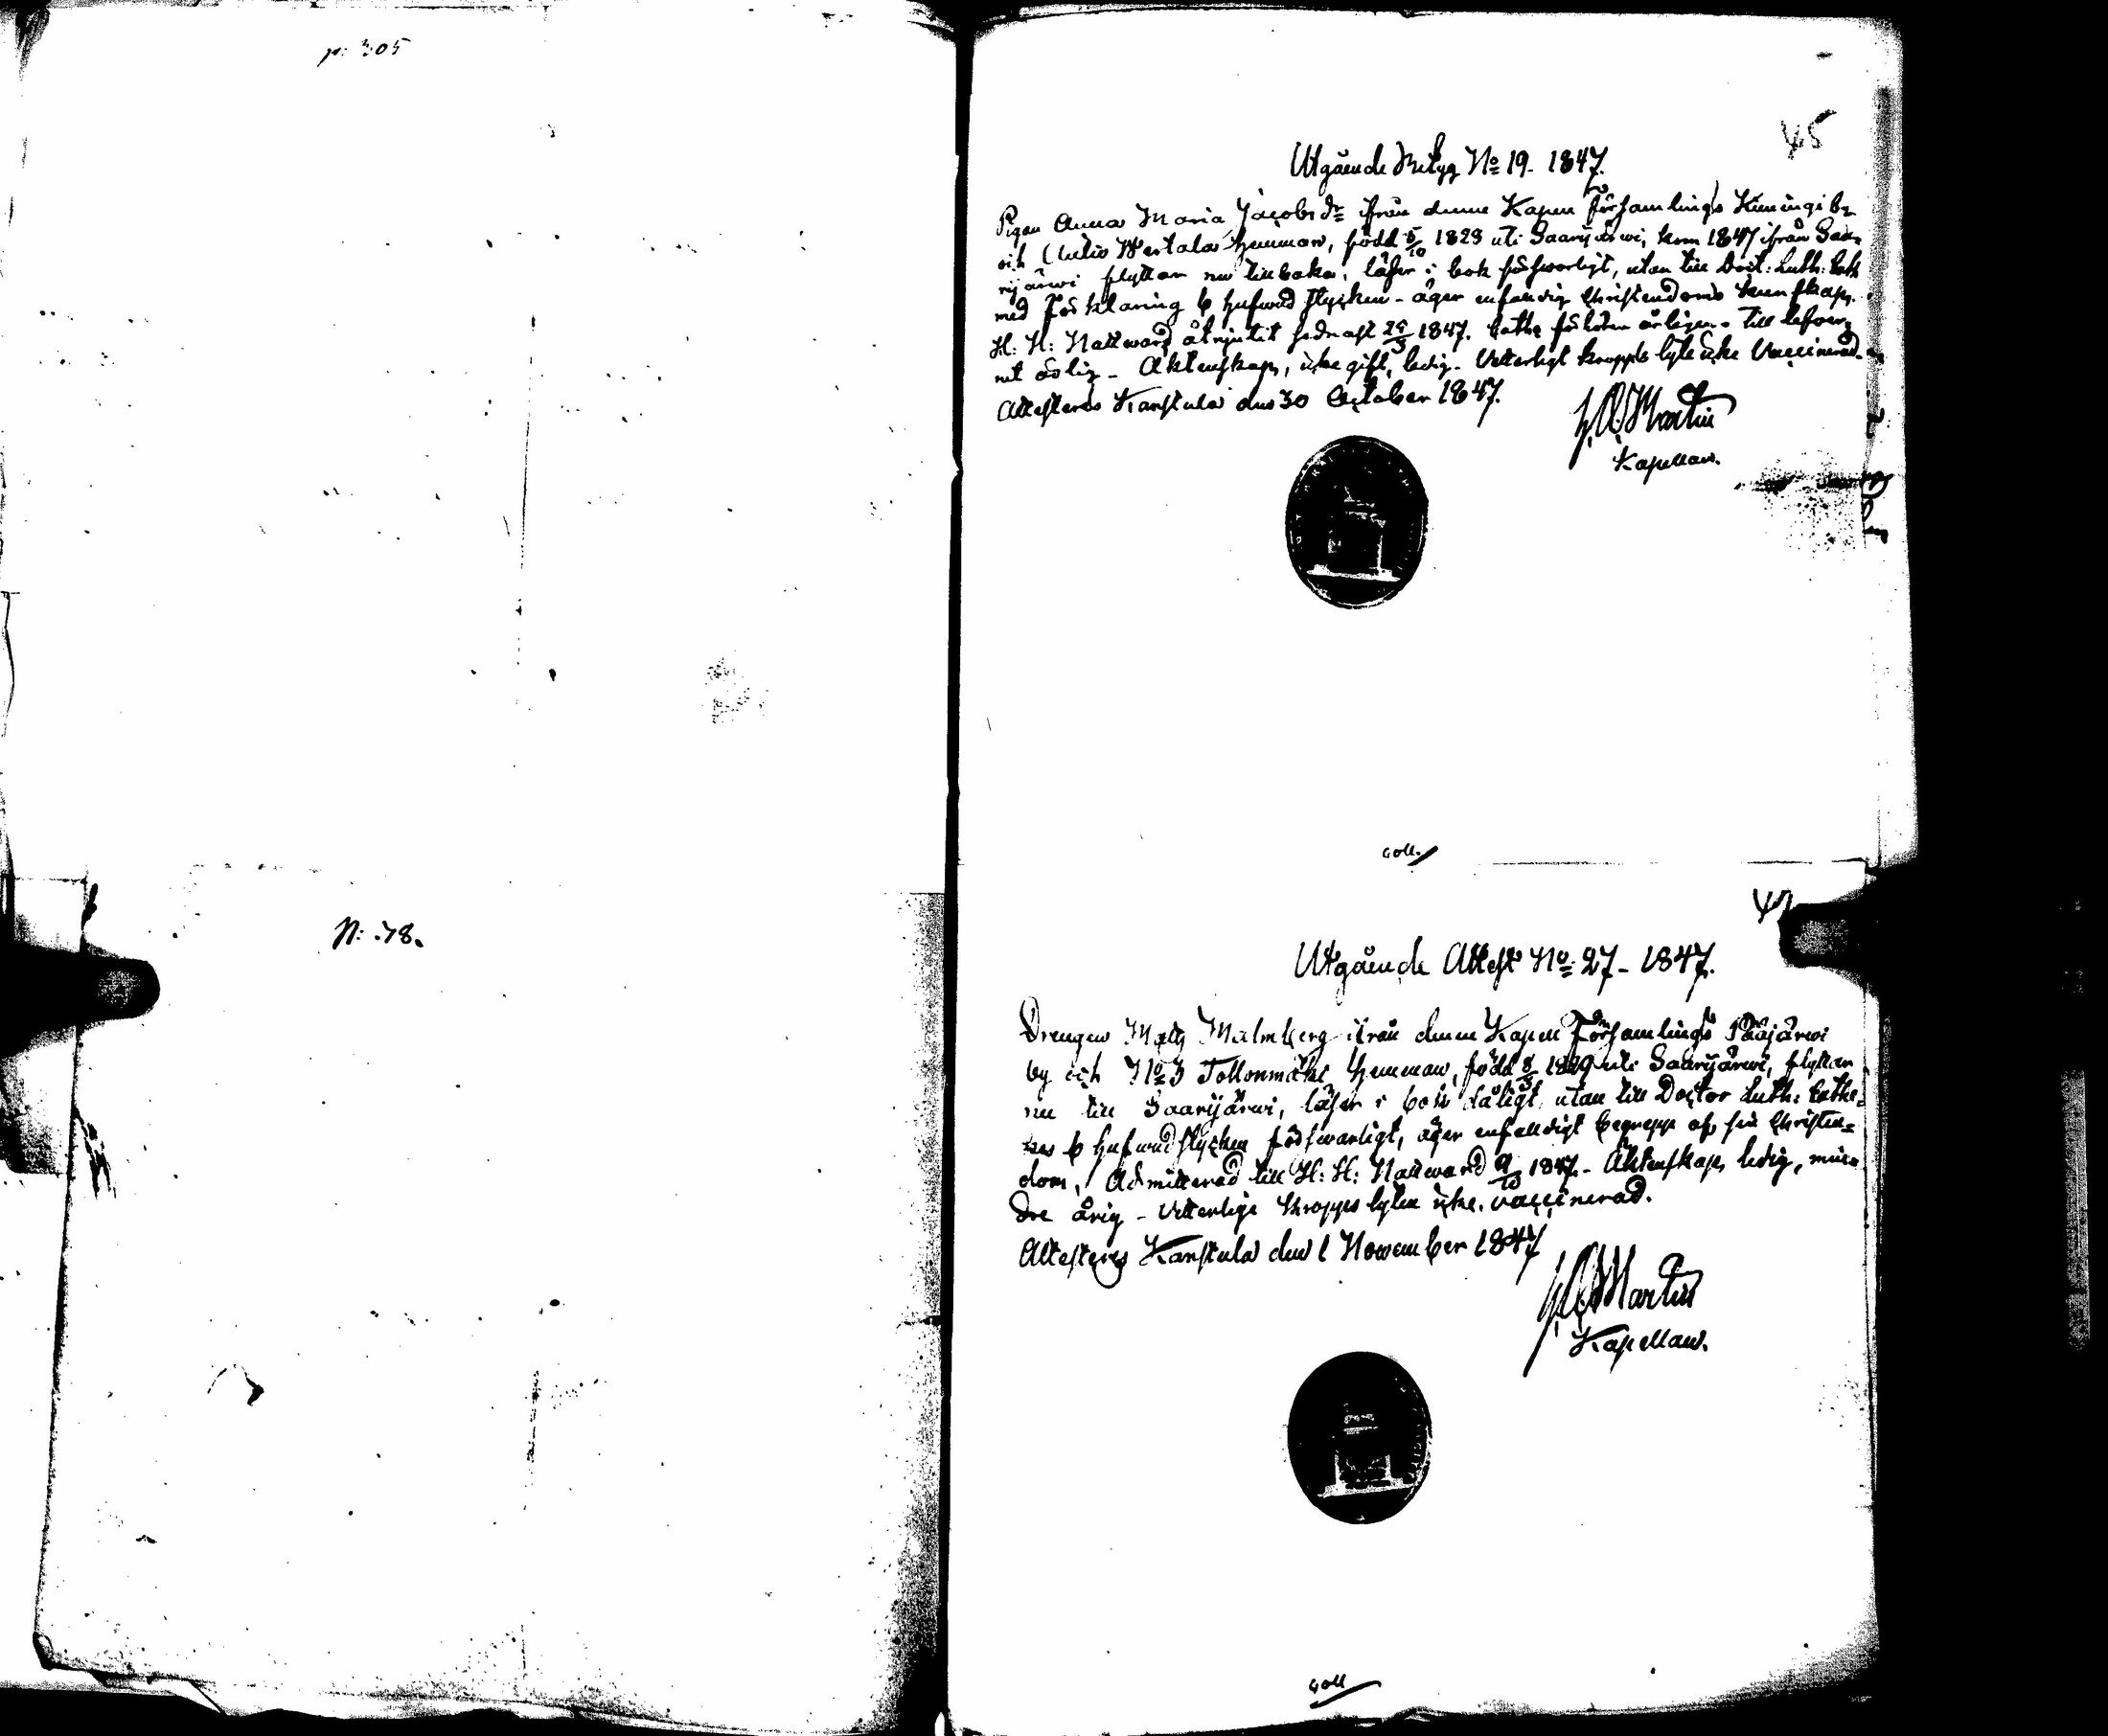 p: 305
N: 78.
45
Utgående Betyg No 19. 1847.
Pigan Anna Maria Jacobsdr ifrån denne Kapell Församlings Kimingi by
och Wertala Hemman, född 5/10 1828 uti Saarijärwi, kom 1847 ifrån Saa-
rijärwi flyttar nu tillbaka, läser i bok försvarligt, utan till Doct: Luth: Cath
med Förklaring 6 hufwud stycken - äger enfaldig Christendoms kunskap.
H: H: Nattward åtnjutit sednast 1847. till lefwer-
net - Äktenskap, icke gift, ledig - Veterligt kropps lyte icke Vaccinerad.
Attesteras Karstula den 30 October 1847.
Martin
Kapellan.
Coll.
Utgående Attest No 27 - 1847.
Drengen Matts Malmberg ifrån denne Kapell Församlings Pääjärwi
by och No 3 Hemman, född uti Saarijärwi, flyttar
nu till Saarijärwi, läser i bok dåligt, utan till Doctor Luth: Cathe-
ses 6 hufwud stycken försvarligt, äger enfaldigt begrepp af sin Christen-
dom, Admitterad till H: H: Nattward 9/10 1847. - Äktenskap ledig, min-
dre årig - Veterlige kropps lyten icke, vaccinerad.
Attesteras Karstula den 1 November 1847
Martin
Kapellan.
Coll